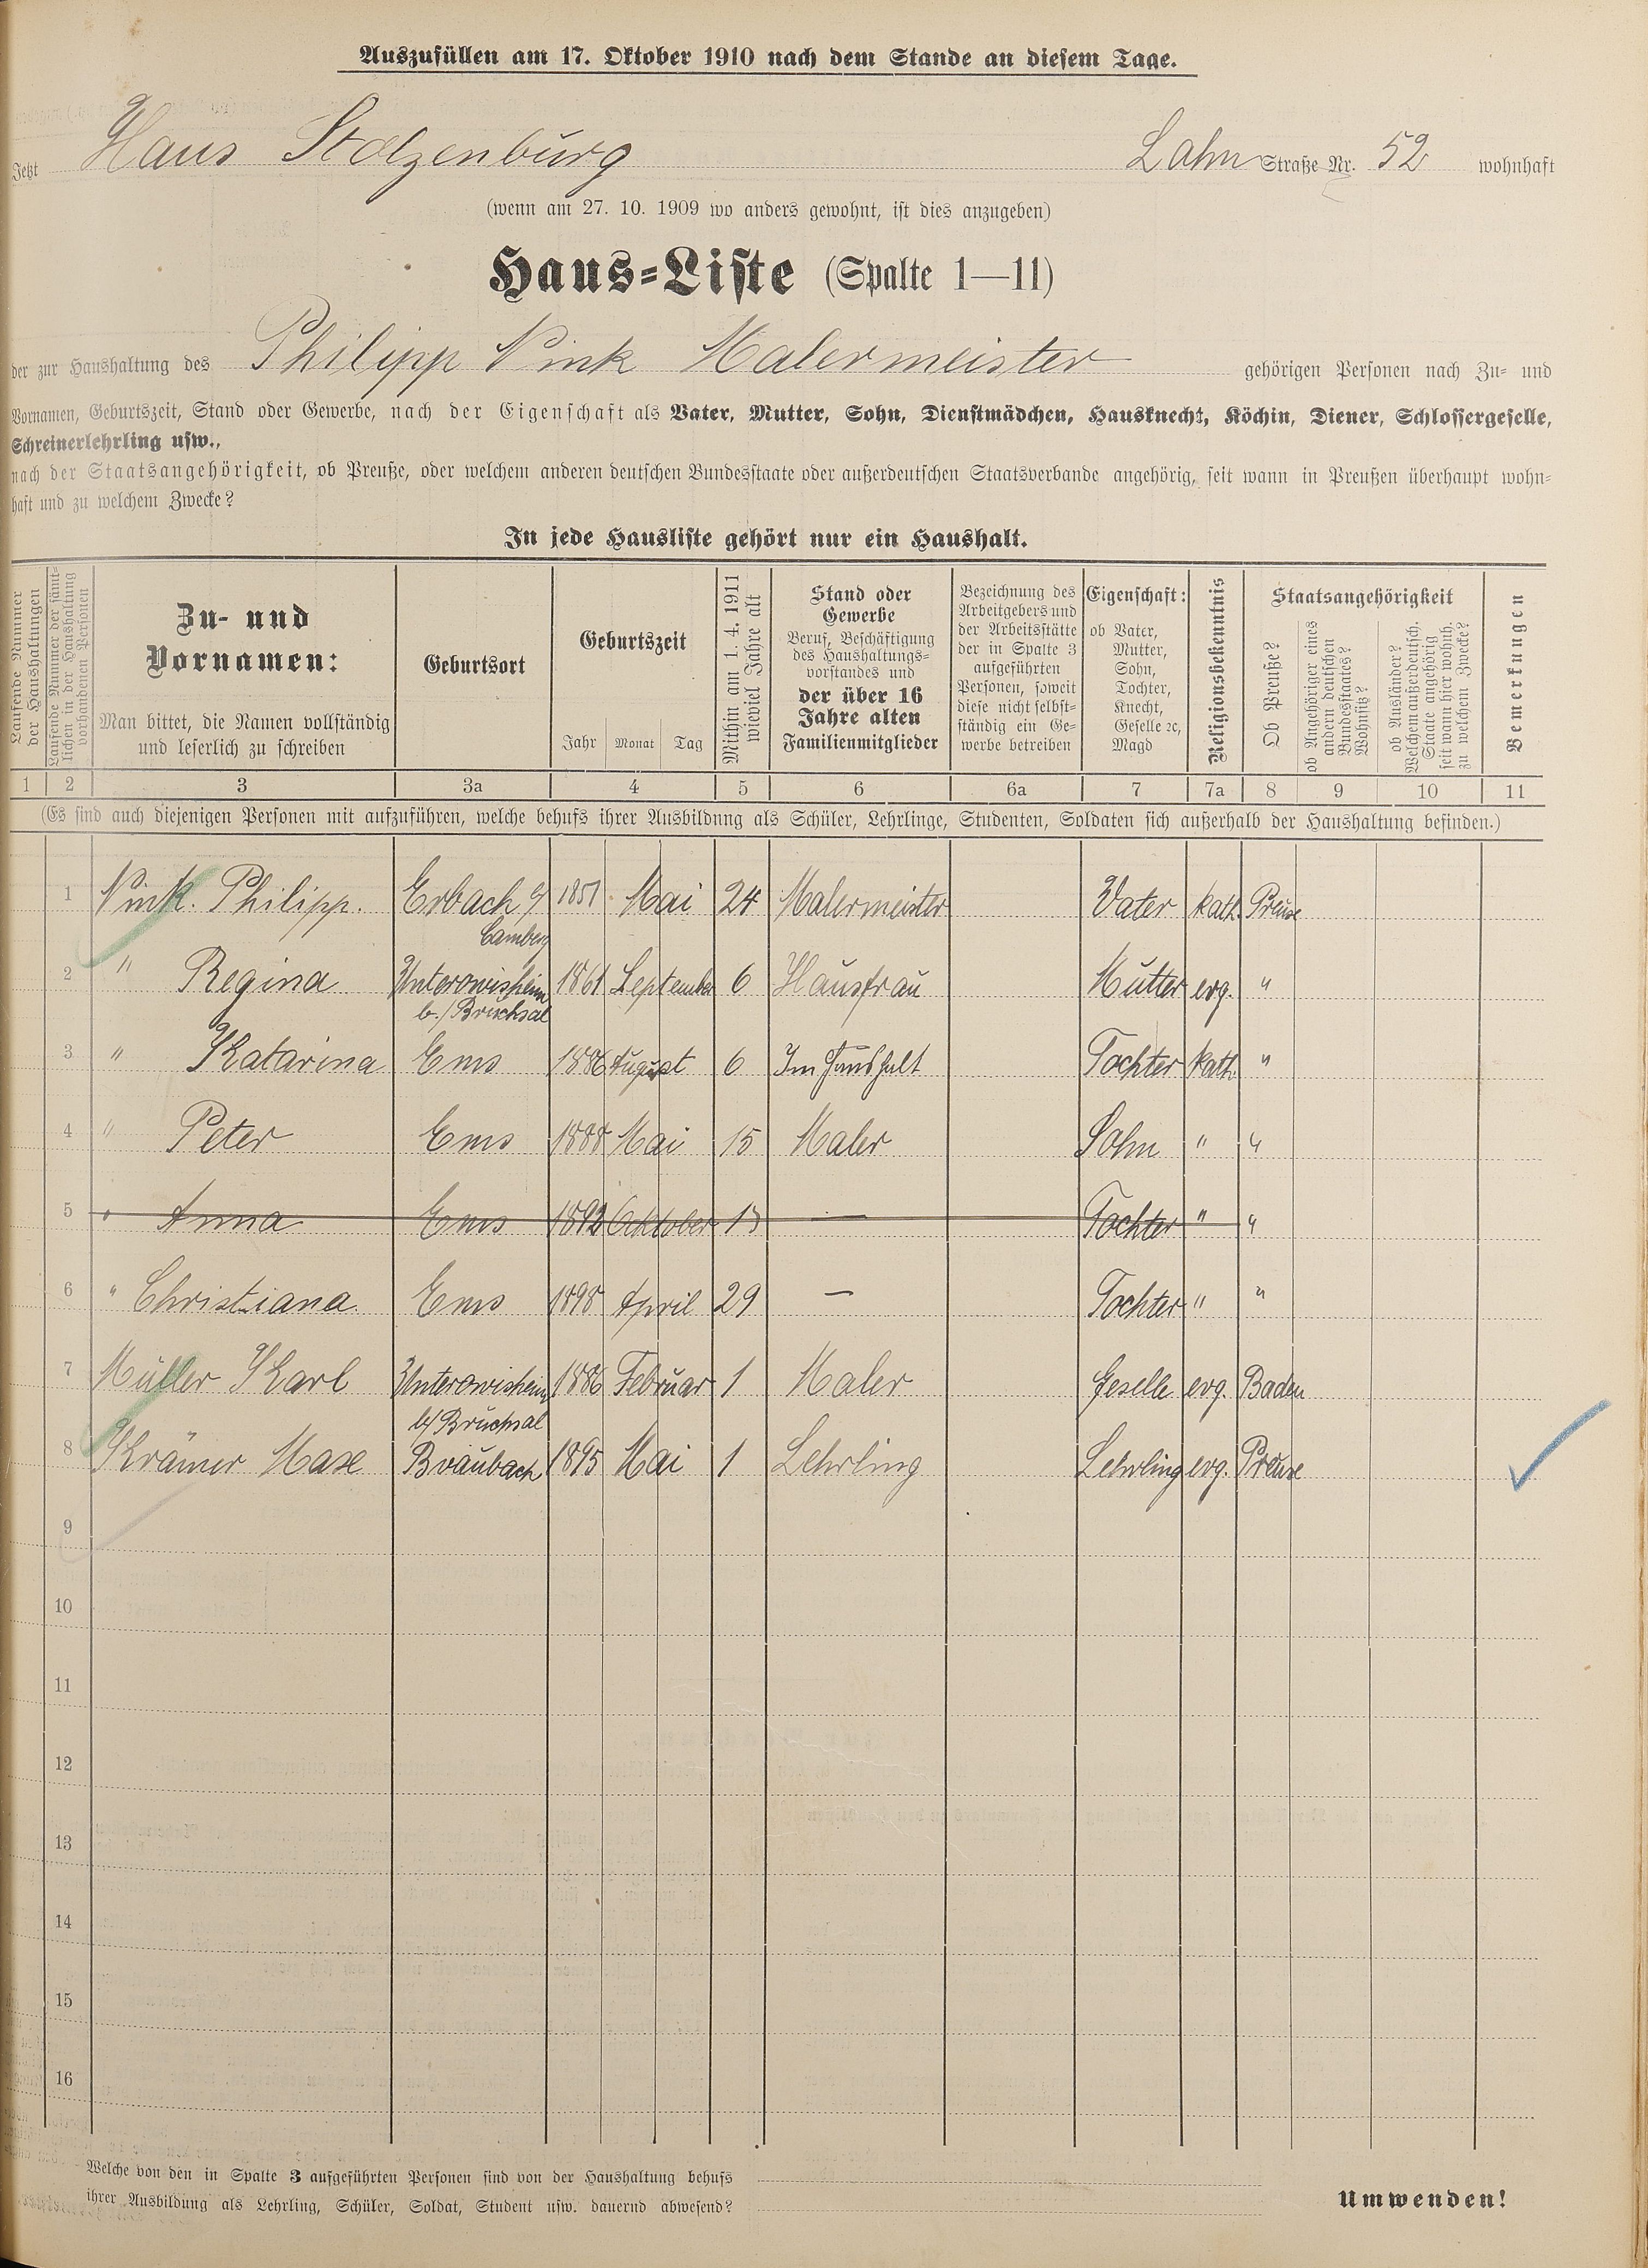 Auszufüllen am 17. Oktober 1910 nach dem Stande an diesem Tage.
Jetzt Haus Stolzenburg Lahn Straße Nr. 52 wohnhaft
(wenn am 27. 10. 1909 wo anders gewohnt, ist dies anzugeben)
Haus-Liste (Spalte 1—11)
der zur Haushaltung des Philipp Pink Malermeister gehörigen Personen nach Zu- und
Vornamen, Geburtszeit, Stand oder Gewerbe, nach der Eigenschaft als Vater, Mutter, Sohn, Dienstmädchen, Hausknecht, Köchin, Diener, Schlossergeselle,
Schreinerlehrling usw.,
nach der Staatsangehörigkeit, ob Preuße, oder welchem anderen deutschen Bundesstaate oder außerdeutschen Staatsverbande angehörig, seit wann in Preußen überhaupt wohn-
haft und zu welchem Zwecke?
In jede Hausliste gehört nur ein Haushalt.
Laufende Nummer
der Haushaltungen
Laufende Nummer der sämt-
lichen in der Haushaltung
vorhandenen Personen
Zu- und
Vornamen:
Man bittet, die Namen vollständig
und leserlich zu schreiben
Geburtsort
Geburtszeit
Jahr Monat Tag
Mithin am 1. 4. 1911
wieviel Jahre alt
Stand oder
Gewerbe
Beruf, Beschäftigung
des Haushaltungs-
vorstandes und
der über 16
Jahre alten
Familienmitglieder
Bezeichnung des
Arbeitgebers und
der Arbeitsstätte
der in Spalte 3
aufgeführten
Personen, soweit
diese nicht selbst-
ständig ein Ge-
werbe betreiben
Eigenschaft:
ob Vater,
Mutter,
Sohn,
Tochter,
Knecht,
Geselle ꝛc,
Magd
Religionsbekenntnis
Staatsangehörigkeit
Ob Preuße?
ob Angehöriger eines
andern deutschen
Bundesstaates?
Wohnsitz?
ob Ausländer?
Welchem außerdeutsch.
Staate angehörig
seit wann hier wohnh.
zu welchem Zwecke?
Bemerkungen
1 2 3 3a 4 5 6 6a 7 7a 8 9 10 11
(Es sind auch diejenigen Personen mit aufzuführen, welche behufs ihrer Ausbildung als Schüler, Lehrlinge, Studenten, Soldaten sich außerhalb der Haushaltung befinden.)
1 Pink. Philipp. Erbach b/ 1851 Mai 24 Malermeister Vater kath. Preuse
Camberg
2 " Regina Unterowisheim 1861 September 6 Hausfrau Mutter evg. "
b./Bruchsal
3 " Katarina Ems 1886 August 6 Im Haushalt Tochter kath. "
4 " Peter Ems 1888 Mai 15 Maler Sohn " "
5 " Anna Ems Oktober 13 — Tochter " "
6 " Christiana Ems 1898 April 29 — Tochter " "
7 Müller Karl Unterowisheim 1886 Februar 1 Maler Geselle evg. Baden
b/Bruchsal
8 Krämer Maxe Braubach 1895 Mai 1 Lehrling Lehrling evg. Preuse
9
10
11
12
13
14
15
16
Welche von den in Spalte 3 aufgeführten Personen sind von der Haushaltung behufs
ihrer Ausbildung als Lehrling, Schüler, Soldat, Student usw. dauernd abwesend?
Umwenden!